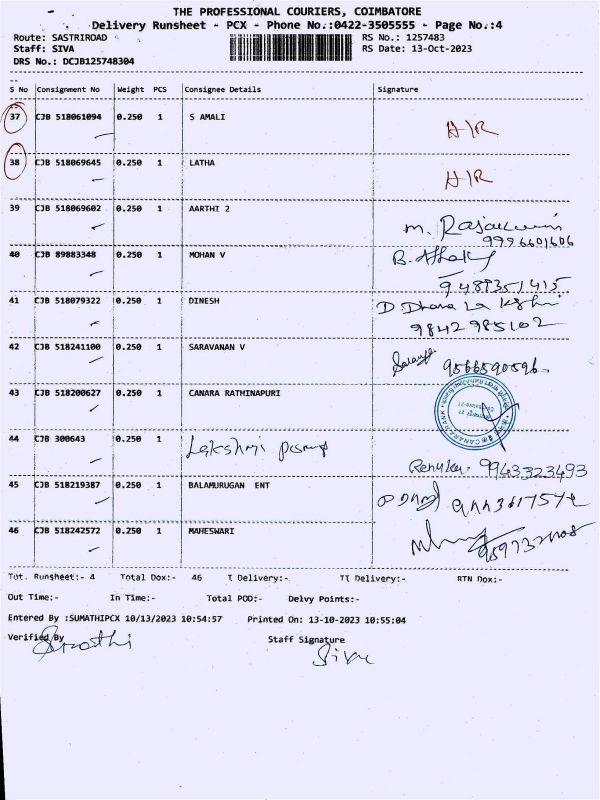 THE PROFESSIONAL COURIERS, COIMBATORE
Delivery Runsheet - PCX - Phone No.:0422-3505555 - Page No.:4
Route: SASTRIROAD
RS No.: 1257483
Staff: SIVA
RS Date: 13-Oct-2023
DRS No.: DCJB125748304
S No Consignment No Weight PCS Consignee Details Signature
37 CJB 518061094 0.250 1 S AMALI
38 CJB 518069645 0.250 1 LATHA
39 CJB 518069602 0.250 1 AARTHI 2
9996601606
40 CJB 89883348 0.250 1 MOHAN V
9489351415
41 CJB 518079322 0.250 1 DINESH
9842985102
42 CJB 518241100 0.250 1 SARAVANAN V 9566590596
43 CJB 518200627 0.250 1 CANARA RATHINAPURI
44 CJB 300643 0.250 1 Lakshmi
Renuka. 9943323493
45 CJB 518219387 0.250 1 BALAMURUGAN ENT
46 CJB 518242572 0.250 1 MAHESWARI
Tot. Runsheet:- 4 Total Dox:- 46 T Delivery:- TT Delivery:- RTN Dox:-
Out Time:- In Time:- Total POD:- Delvy Points:-
Entered By :SUMATHIPCX 10/13/2023 10:54:57 Printed On: 13-10-2023 10:55:04
Verified By Staff Signature
Siva